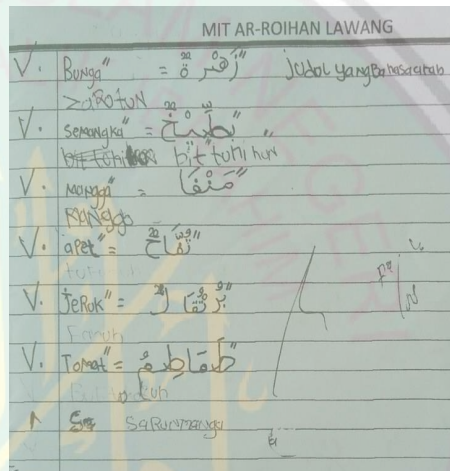 MIT AR-ROIHAN LAWANG
V. Bunga" = "زَهْرَةٌ judol yang Bahasa arab
ZAROTUN
V. semangka" = بِطِّيْخٌ"
bit tuhi hun
V. mangga" = مَنْفَا"
MANGGO
V. apel" = تُفَّاحٌ"
V. Jeruk" = بُرْتُقَالٌ"
V. Tomat" = طَمَاطِمُ"
SaRunmanga